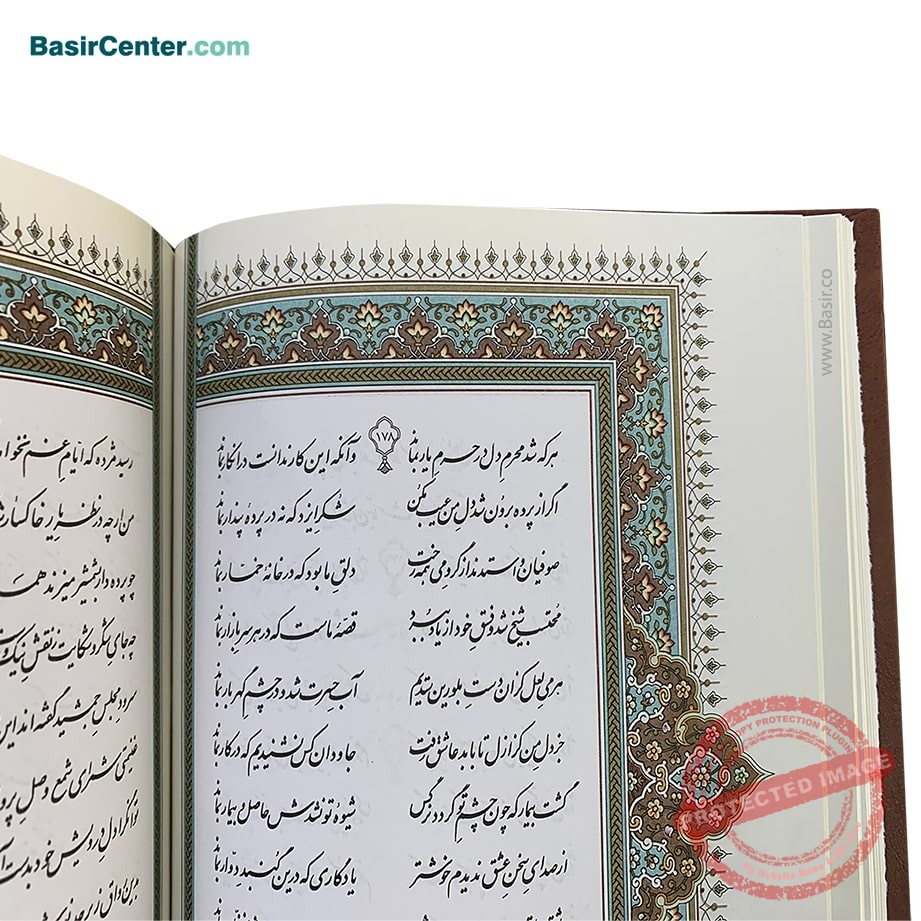 BasirCenter.com
www.Basir.co
۱۷۸
هر که شد محرم دل در حرم یار بماند وآنکه این کار ندانست در انکار بماند
اگر از پرده برون شد دل من عیب مکن شکر ایزد که نه در پردهٔ پندار بماند
صوفیان واستدند از گرو می همه رخت دلق ما بود که در خانهٔ خمار بماند
محتسب شیخ شد و فسق خود از یاد ببرد قصهٔ ماست که در هر سر بازار بماند
هر می لعل کزان دست بلورین ستدیم آب حسرت شد و در چشم گهربار بماند
جز دل من کز ازل تا به ابد عاشق رفت جاودان کس نشنیدیم که در کار بماند
گشت بیمار که چون چشم تو گردد نرگس شیوهٔ تو نشدش حاصل و بیمار بماند
از صدای سخن عشق ندیدم خوشتر یادگاری که درین گنبد دوار بماند
رسید مژده که ایام غم نخواهد
من ار چه در نظر یار خاکسار
چو پرده دار بشمشیر میزند همه
چه جای شکر و شکایت ز نقش نیک
سرود مجلس جمشید گفته اند این
غنیمتی شمر ای شمع وصل پروانه
توانگرا دل درویش خود بدست
PROTECTED IMAGE
COPY PROTECTION PLUGIN
My Website Name &